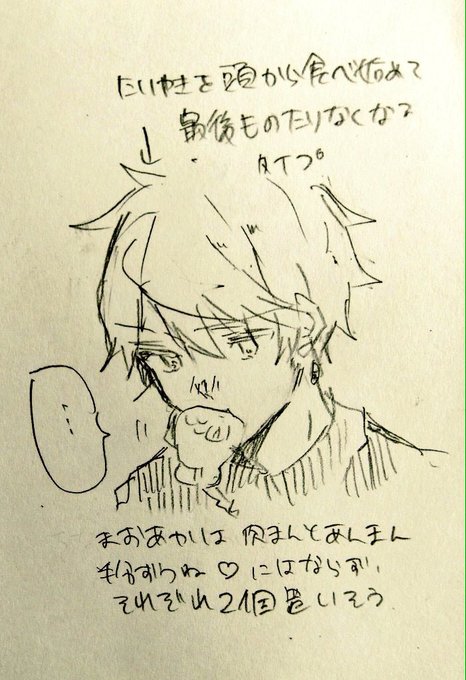 たいやきを頭から食べ始めて
最後ものたりなくなる
タイプ。
…
まおあかは 肉まんとあんまん
半分ずつね♡にはならず、
それぞれ2個買いそう